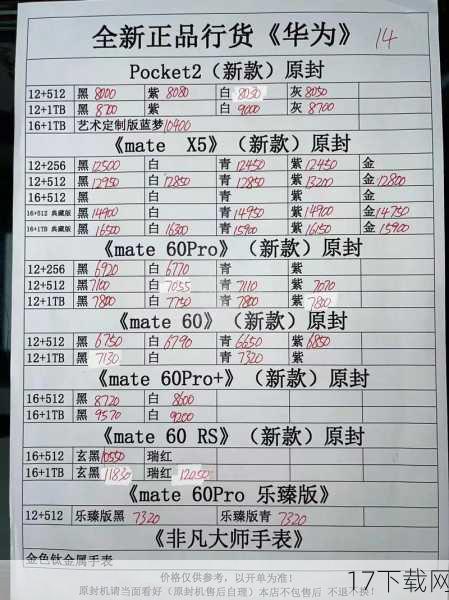 全新正品行货《华为》 14
Pocket2（新款）原封
12+512 黑 8000 紫 8080 白 8030 灰 8050
12+1TB 黑 8700 紫 白 9000 灰 8700
16+1TB 艺术定制版蓝梦 10400
《mate X5》（新款）原封
12+256 黑 12500 白 青 12450 紫 12450 金
12+512 黑 12950 白 12850 青 12850 紫 13200 金 12800
16+512 黑 白 青 紫 金
16+512 典藏版 黑 14900 白 青 14950 紫 14900 金 14750
16+1TB 典藏版 黑 16500 白 16300 青 15900 紫 16150 金 15900
《mate 60Pro》（新款）原封
12+256 黑 6920 白 6770 青 紫
12+512 黑 7100 白 7055 青 7110 紫 7070
12+1TB 黑 7800 白 7750 青 7800 紫 7800
《mate 60》（新款）原封
12+512 黑 6750 白 6790 青 6650 紫 6850
12+1TB 黑 7130 白 青 7320 紫
《mate 60Pro+》（新款）原封
16+512 黑 8720 白 8600
16+1TB 黑 9570 白 9200
《mate 60 RS》（新款）原封
16+512 玄黑 10550 瑞红
16+1TB 玄黑 11830 瑞红 12050
《mate 60Pro 乐臻版》
12+512 乐臻版黑 7320 乐臻版青 7320
《非凡大师手表》
金色钛金属手表
价格仅供参考，以开单为准！
原封机请当面看好（原封机售后自理）本店不包售后 不退不换！
17下载网